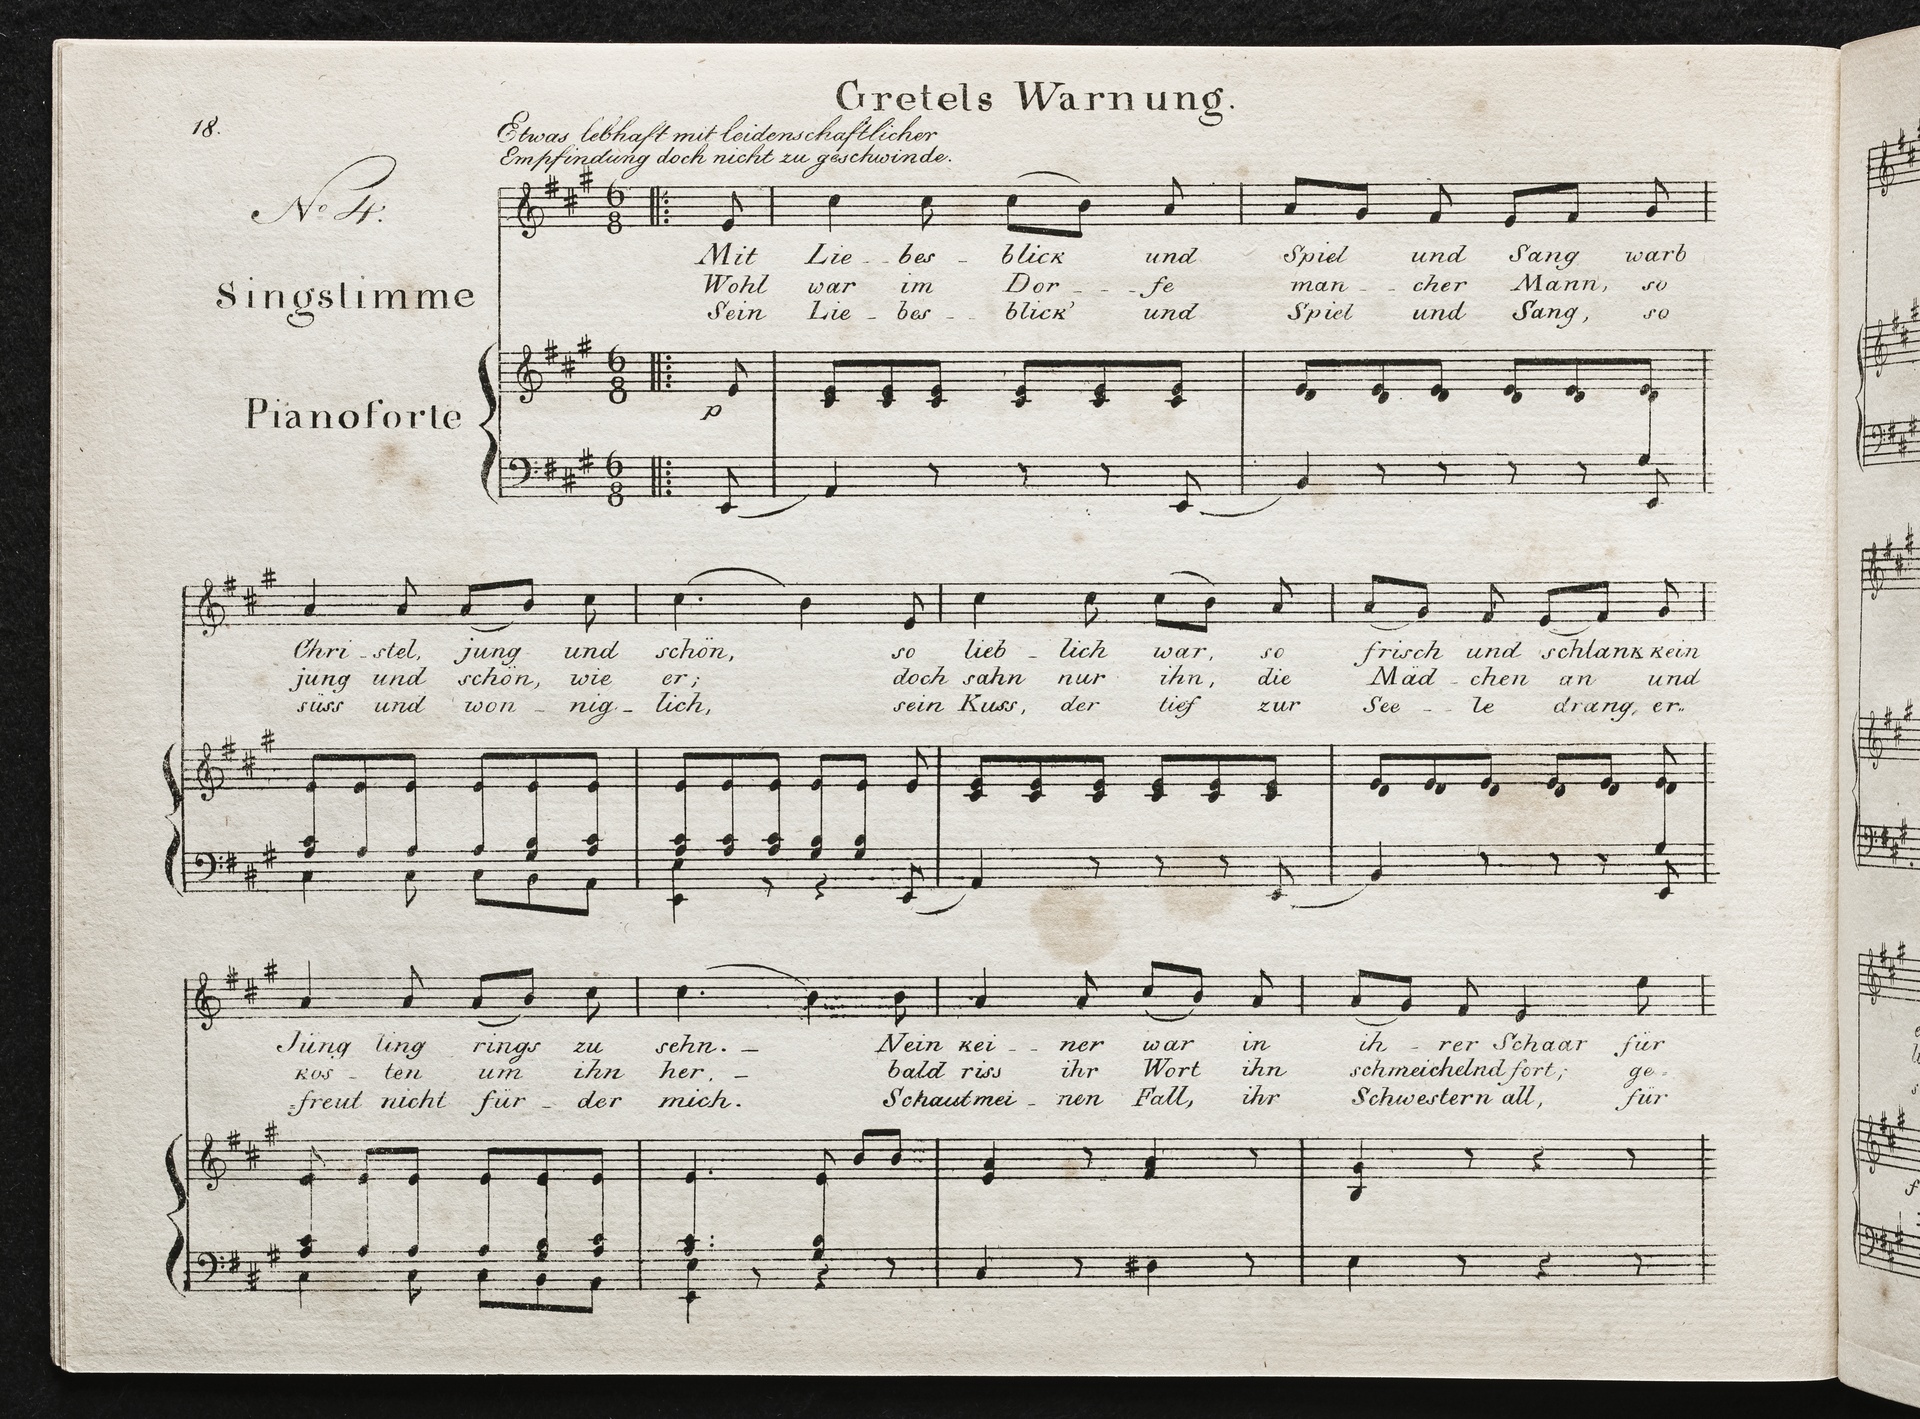 Gretels Warnung.
18.
Etwas lebhaft mit leidenschaftlicher
Empfindung doch nicht zu geschwinde.
No 4.
Singstimme
Mit Lie - bes - blick und Spiel und Sang warb
Wohl war im Dor - - - fe man - - cher Mann, so
Sein Lie - bes - - blick' und Spiel und Sang, so
Pianoforte
p
Chri - stel, jung und schön, so lieb - lich war, so frisch und schlank kein
jung und schön, wie er; doch sahn nur ihn, die Mäd - chen an und
süss und won - nig - lich, sein Kuss, der tief zur See - - le drang, er..
Jüng ling rings zu sehn. - Nein kei - - ner war in ih - rer Schaar für
kos - ten um ihn her. - bald riss ihr Wort ihn schmeichelnd fort; ge -
freut nicht für - der mich. Schaut mei - nen Fall, ihr Schwestern all, für